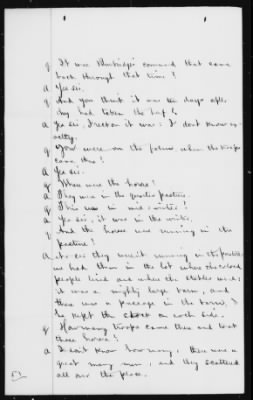 q It was Burbridge's command that came
back through that time?
a Yes sir.
q And you think it was ten days after
they had taken the beef?
a Yes sir, I reckon it was: I dont know ex-
actly.
q You were on the farm when the troops
came there?
a Yes sir.
q Where were the horses?
a They were in the pasture.
q This was in mid winter?
a Yes sir, it was in the winter.
q And the horses was running in the
pasture?
a No sir they weren't running in the pasture
we kept them in the lot where the colored
people lived and where the stables were;
it was a mighty large barn, and
there was a passage in the barn, &
he kept the on each side.
q How many troops came there and took
those horses?
a I dont know how many, there was a
great many men, and they scattered
all over the place.